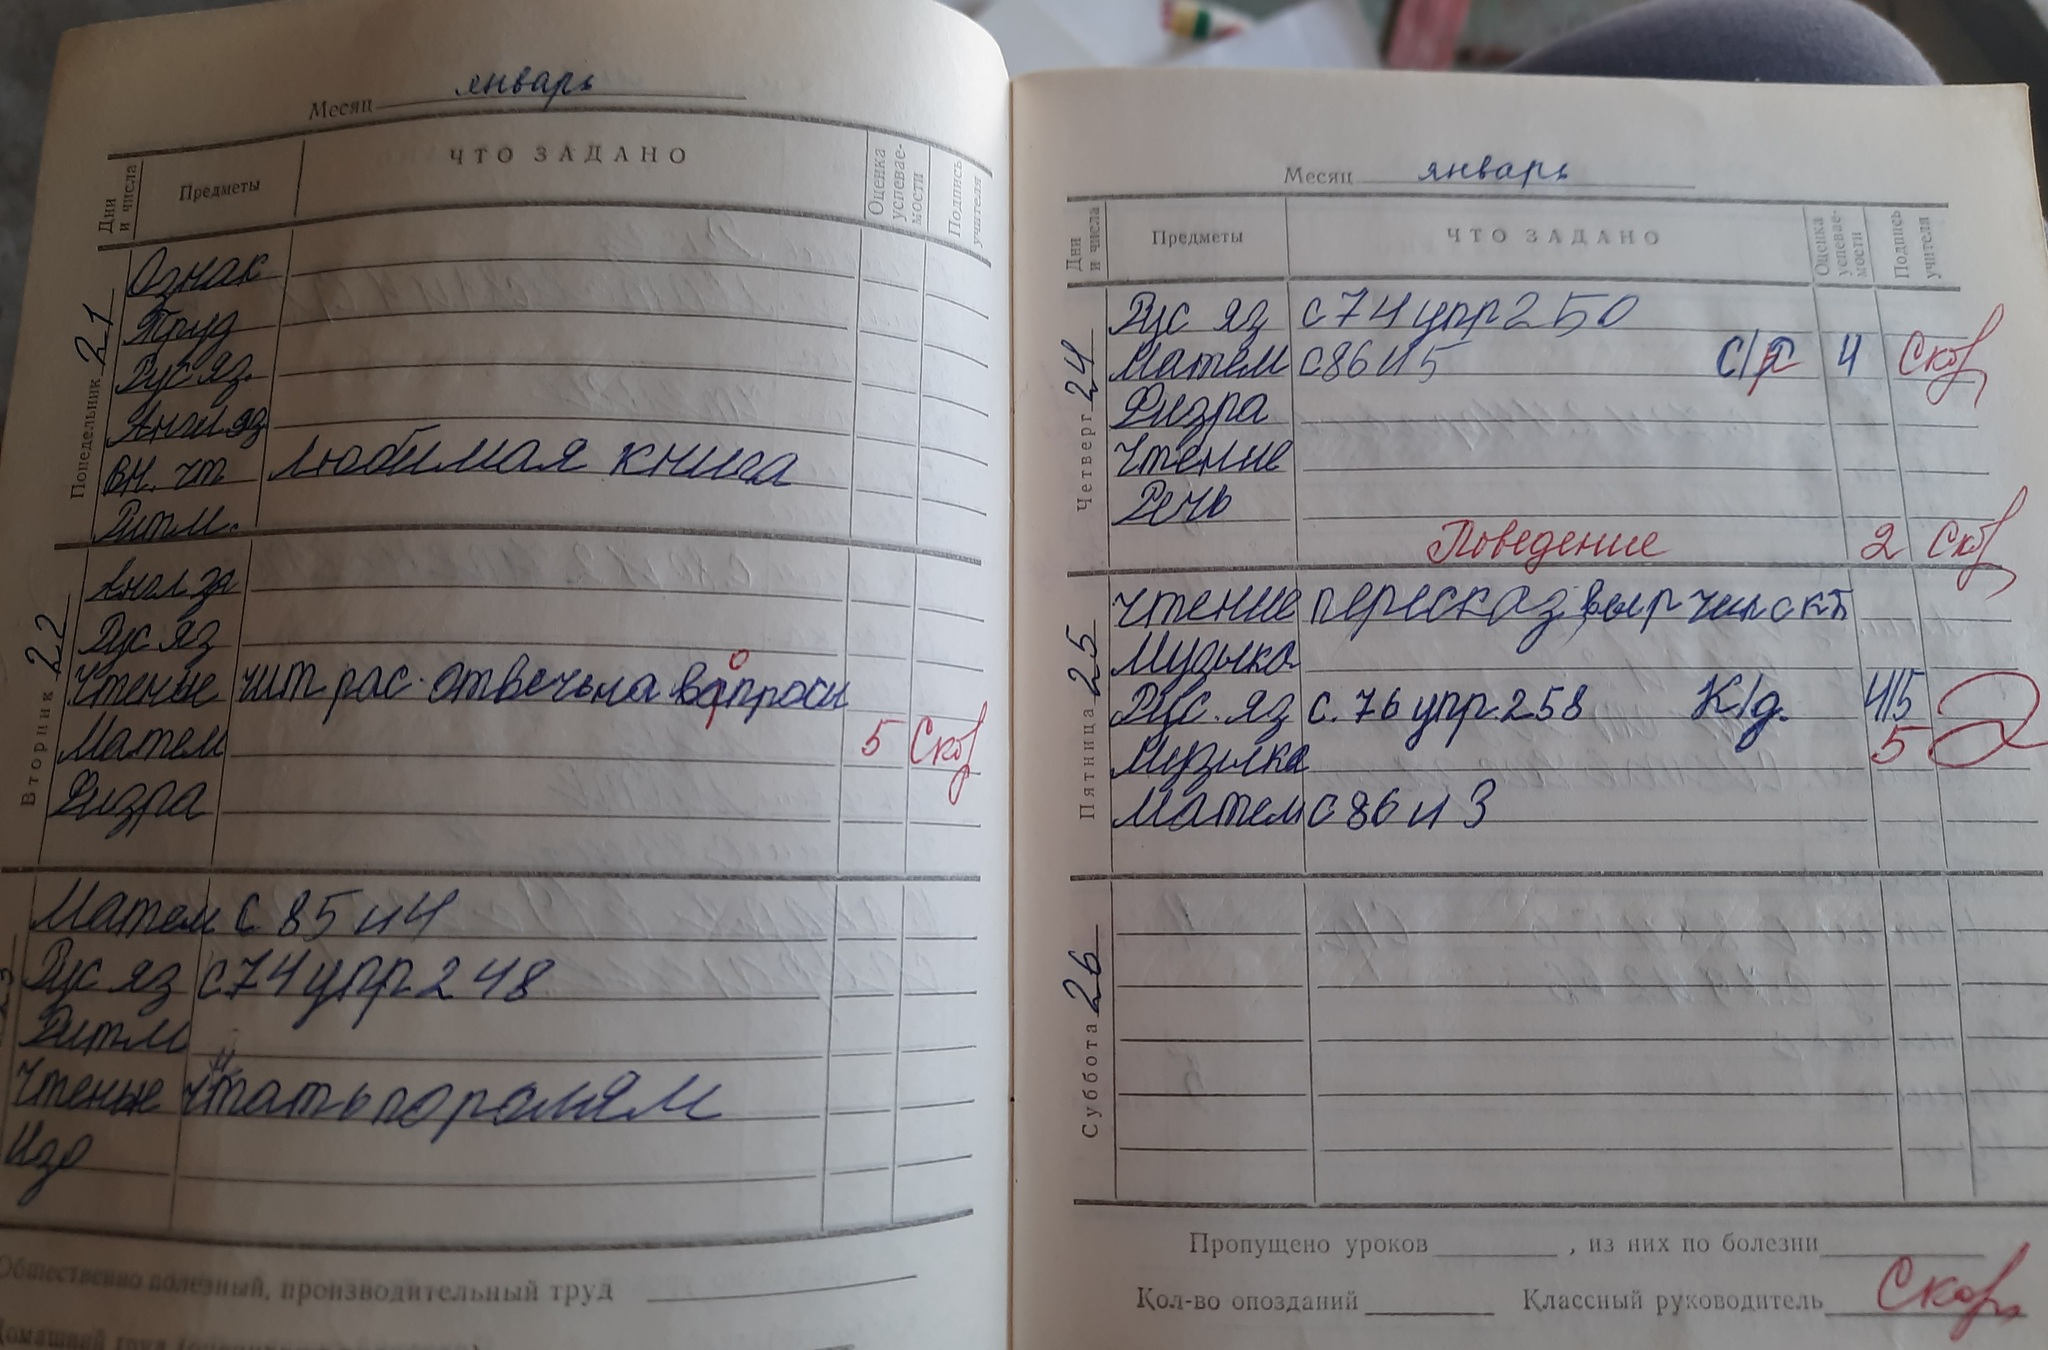 Месяц январь
Дни и числа Предметы ЧТО ЗАДАНО Оценка успевае-мости Подпись учителя
Понедельник 21
Ознак
Труд
Рус яз.
Англ яз
вн. чт любимая книга
Ритм.
Вторник 22
Англ яз
Рус яз
Чтенье чит рас. отвечь на вопросы
Матем 5 Скор
Физра
23
Матем с 85 н 4
Рус яз с 74 упр 248
Ритм
Чтенье читать по ролям
Изо
Общественно полезный, производительный труд
Домашний труд
Месяц январь
Дни и числа Предметы ЧТО ЗАДАНО Оценка успевае-мости Подпись учителя
Четверг 24
Рус яз с 74 упр 250
Матем с 86 н 5 С/р 4 Скор
Физра
Чтение
Речь
Поведение 2 Скор
Пятница 25
Чтение пересказ
Музыка
Рус. яз с. 76 упр. 258 К/д. 4/5
Музыка 5
Матем с 86 н 3
Суббота 26
Пропущено уроков , из них по болезни
Кол-во опозданий Классный руководитель Скор